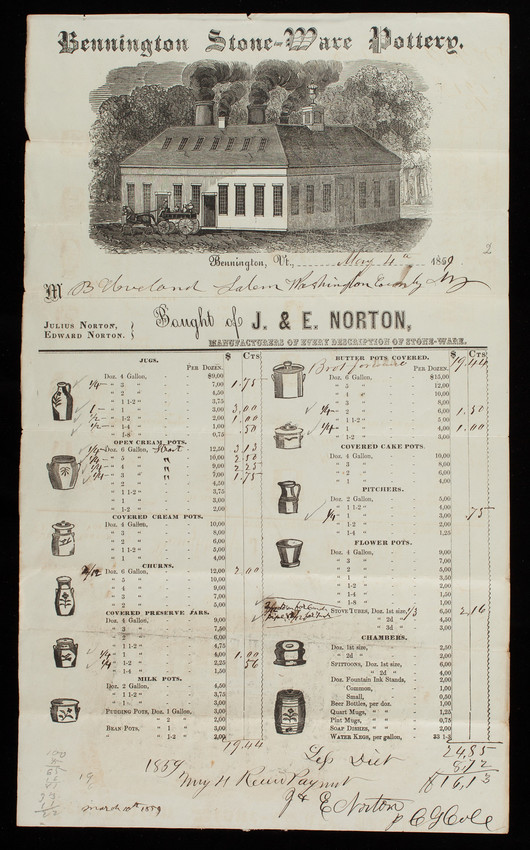 Bennington Stone-Ware Pottery.
Bennington, Vt., May 4th 1859
2
M B Cleveland Salem Washington County Ny
JULIUS NORTON,
EDWARD NORTON.
Bought of J. & E. NORTON,
MANUFACTURERS OF EVERY DESCRIPTION OF STONE-WARE.
$ Cts
JUGS.
PER DOZEN.
1/4 Doz. 4 Gallon, $9,00
" 3 " 7,00 1.75
" 2 " 4,50
" 1 1-2 " 3,75
1 " 1 " 3,00 3.00
1/2 " 1-2 " 2,00 1.00
1/2 " 1-4 " 1,00 .50
" 1-8 " 0,75
OPEN CREAM POTS.
1/4 Doz. 6 Gallon, 12,50 3.13
1/4 " 5 " 10,00 2.50
1/4 " 4 " 9,00 2.25
1/4 " 3 " 7,00 1.75
" 2 " 4,50
" 1 1-2 " 3,75
" 1 " 3,00
" 1-2 " 2,00
COVERED CREAM POTS.
Doz. 4 Gallon, 10,00
" 3 " 8,00
" 2 " 6,00
" 1 1-2 " 5,00
" 1 " 4,00
CHURNS.
2/12 Doz. 6 Gallon, 12,00 2.00
" 5 " 10,00
" 4 " 9,00
" 3 " 7,00
" 2 " 5,00
COVERED PRESERVE JARS.
Doz. 4 Gallon, 9,00
" 3 " 7,50
" 2 " 6,00
" 1 1-2 " 4,75
1/4 " 1 " 4,00 1.00
1/4 " 1-2 " 2,25 56
" 1-4 " 1,50
MILK POTS.
Doz. 2 Gallon, 4,50
" 1 1-2 " 3,75
" 1 " 3,00
PUDDING POTS, Doz. 1 Gallon, 3,00
" 2 " 2,00
BEAN POTS, " 1 " 3,00
" 1-2 " 2,00
19.44
$ Cts
BUTTER POTS COVERED. 19.44
Brot forward
PER DOZEN.
Doz. 6 Gallon, $15,00
" 5 " 12,00
" 4 " 10,00
" 3 " 8,00
1/4 " 2 " 6,00 1.50
" 1 1-2 " 5,00
1/4 " 1 " 4,00 1.00
" 1-2 " 3,00
COVERED CAKE POTS.
Doz. 4 Gallon, 10,00
" 3 " 8,00
" 2 " 6,00
PITCHERS.
Doz. 2 Gallon, 5,00
" 1 1-2 " 4,00
1/4 " 1 " 3,00 .75
" 1-2 " 2,00
" 1-4 " 1,25
FLOWER POTS.
Doz. 4 Gallon, 9,00
" 3 " 7,00
" 2 " 5,00
" 1 " 3,50
" 1-2 " 2,00
" 1-4 " 1,50
" 1-8 " 1,00
STOVE TUBES, Doz. 1st size, 1/3 6,50 2.16
" 2d " 4,00
" 3d " 3,00
CHAMBERS.
Doz. 1st size, 2,50
" 2d " 2,00
SPITTOONS, Doz. 1st size, 6,00
" 2d " 4,00
Doz. Fountain Ink Stands, 2,00
Common, 1,00
Small, 0,50
Beer Bottles, per doz. 1,00
Quart Mugs, 1,25
Pint Mugs, 0,75
SOAP DISHES, 2,00
WATER KEGS, per gallon, 33 1-3
24,85
Less Disct 8,72
$16,13
1859
May 11 Recd Paymnt
J & E Norton
p C G Cole
March 10th 1859